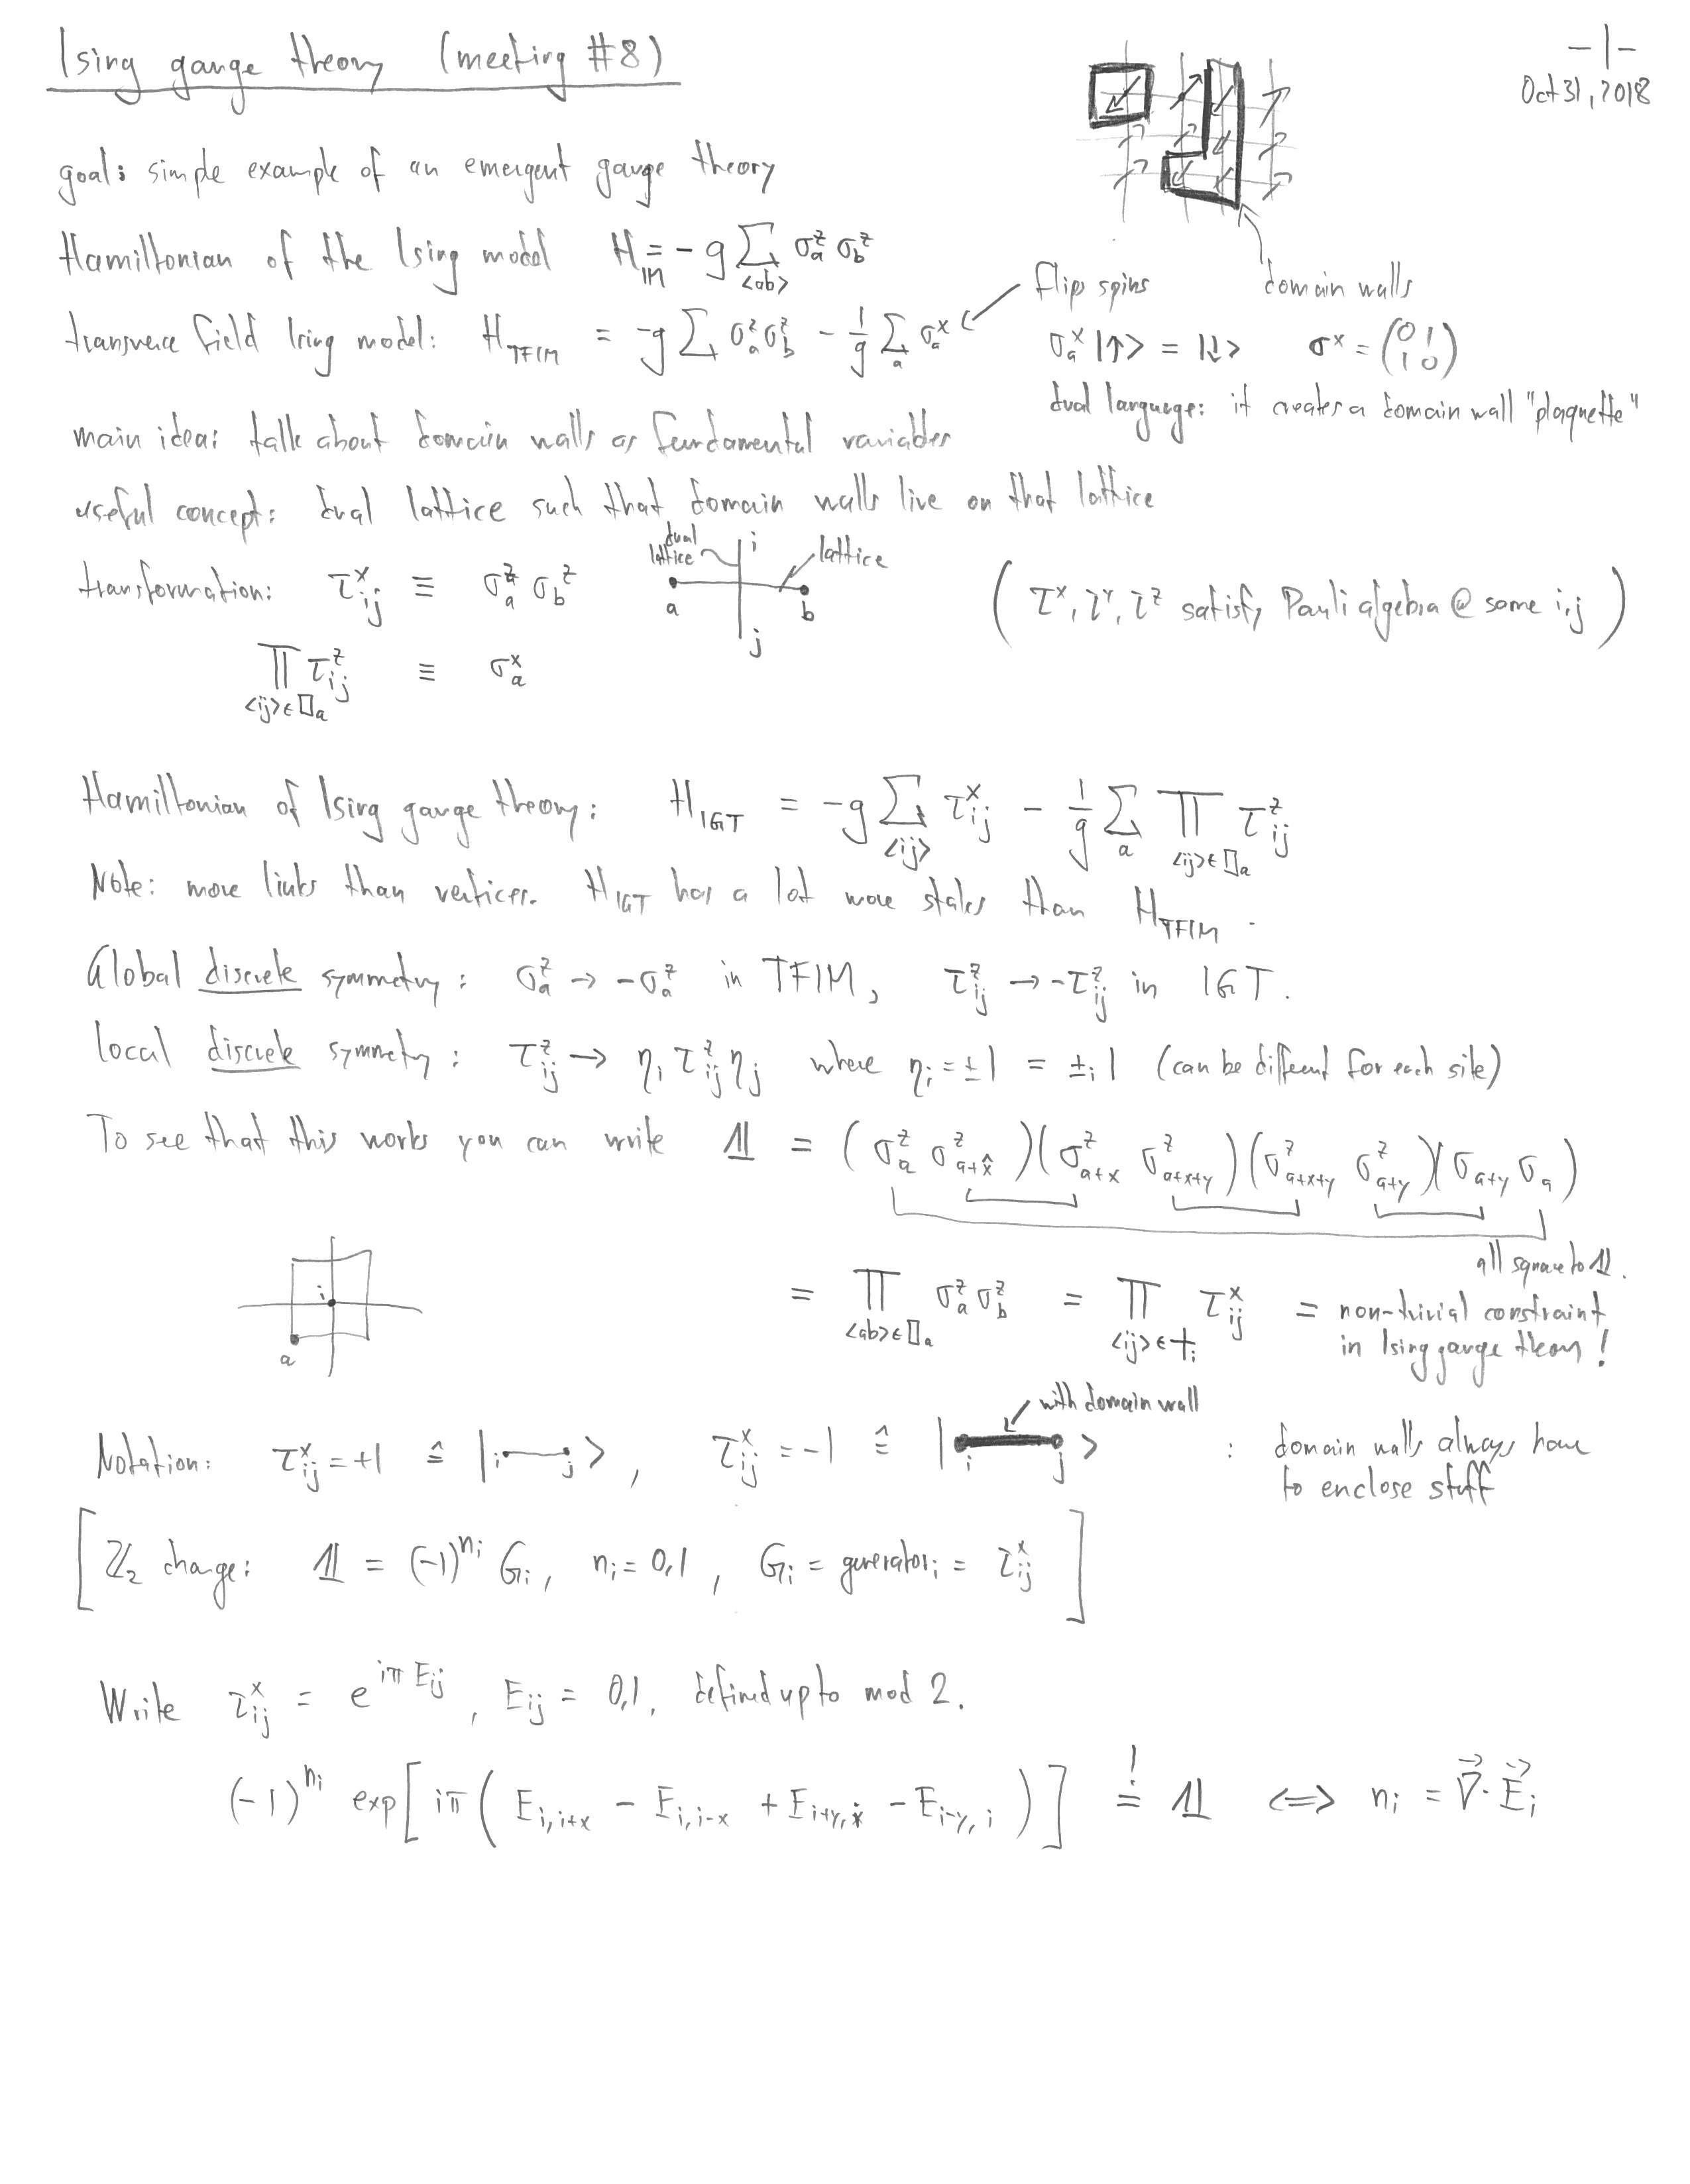 Ising gauge theory (meeting #8)
-1-
Oct 31, 2018
goal: simple example of an emergent gauge theory
Hamiltonian of the Ising model H_IM = - g ∑_<ab> σ_a^z σ_b^z
domain walls
transverse field Ising model: H_TFIM = -g ∑ σ_a^z σ_b^z - 1/g ∑_a σ_a^x
flips spins
σ_a^x |↑> = |↓> σ^x = (0 1 1 0)
dual language: it creates a domain wall "plaquette"
main idea: talk about domain walls as fundamental variables
useful concept: dual lattice such that domain walls live on that lattice
transformation: τ_ij^x ≡ σ_a^z σ_b^z
dual lattice
i
lattice
a
b
j
(τ^x, τ^y, τ^z satisfy Pauli algebra @ same i,j)
∏_<ij>∈□_a τ_ij^z ≡ σ_a^x
Hamiltonian of Ising gauge theory: H_IGT = -g ∑_<ij> τ_ij^x - 1/g ∑_a ∏_<ij>∈□_a τ_ij^z
Note: more links than vertices. H_IGT has a lot more states than H_TFIM.
Global discrete symmetry: σ_a^z → -σ_a^z in TFIM, τ_ij^z → -τ_ij^z in IGT.
Local discrete symmetry: τ_ij^z → η_i τ_ij^z η_j where η_i = ±1 = ±_i 1 (can be different for each site)
To see that this works you can write 𝟙 = (σ_a^z σ_{a+x̂}^z)(σ_{a+x}^z σ_{a+x+y}^z)(σ_{a+x+y}^z σ_{a+y}^z)(σ_{a+y} σ_a)
all square to 𝟙.
i
a
= ∏_<ab>∈□_a σ_a^z σ_b^z = ∏_<ij>∈+_i τ_ij^x = non-trivial constraint
in Ising gauge theory!
with domain wall
Notation: τ_ij^x = +1 ≙ |i—j>, τ_ij^x = -1 ≙ |i—j> : domain walls always have
to enclose stuff
[ℤ_2 charge: 𝟙 = (-1)^{n_i} G_i, n_i = 0,1, G_i = generator_i = τ_ij^x]
Write τ_ij^x = e^{iπ E_ij}, E_ij = 0,1, defined up to mod 2.
(-1)^{n_i} exp[iπ(E_{i,i+x} - E_{i,i-x} + E_{i+y,i} - E_{i-y,i})] =! 𝟙 ⟺ n_i = ∇⃗·E⃗_i